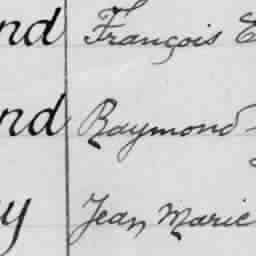 nd François E
nd Raymond
y Jean Marie